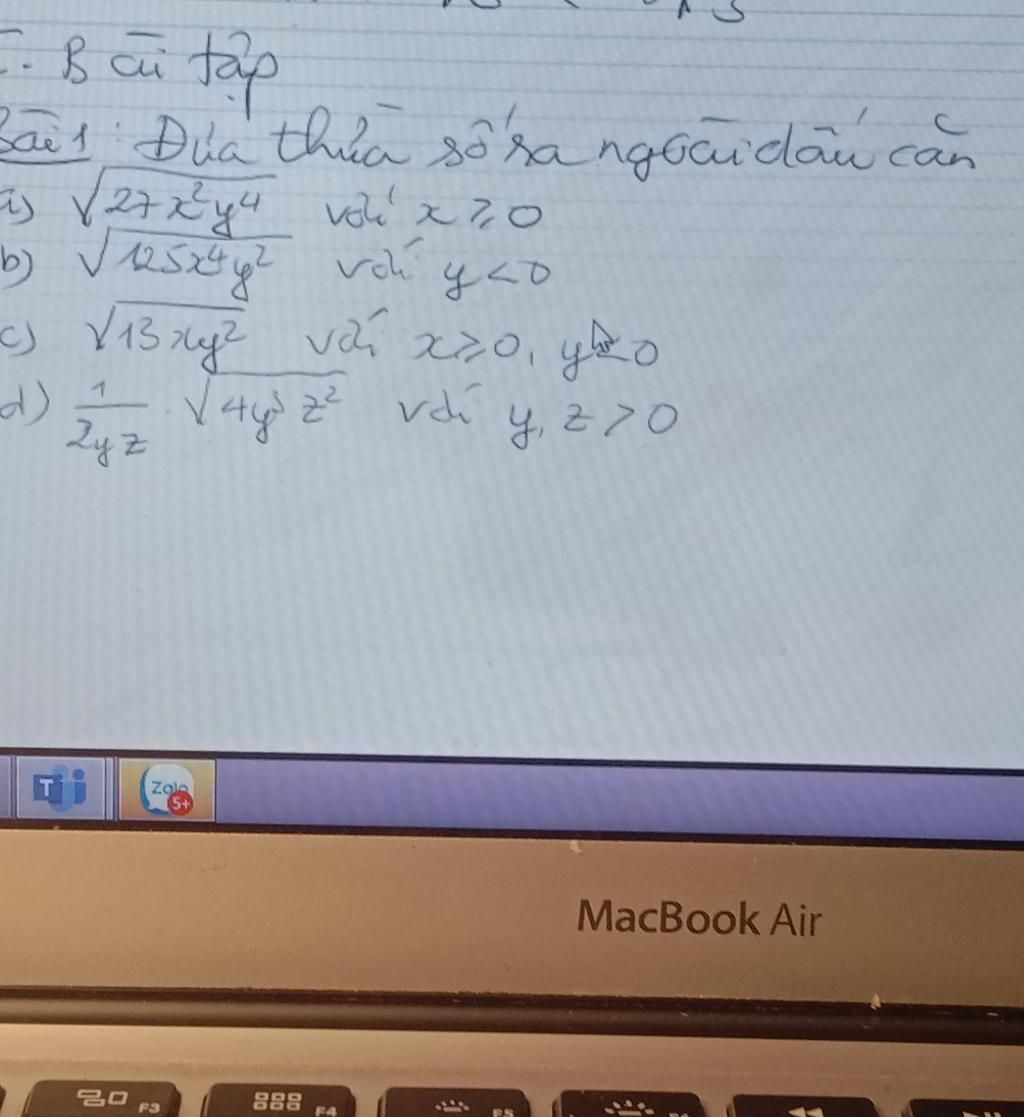 Bài tập
Bài 1: Đưa thừa số ra ngoài dấu căn
a) √27x²y⁴ với x ≥ 0
b) √125x⁴y² với y < 0
c) √13xy² với x ≥ 0, y
d) 1/2yz . √4y³z² với y, z > 0
T
Zalo
5+
MacBook Air
F3
F4
F5